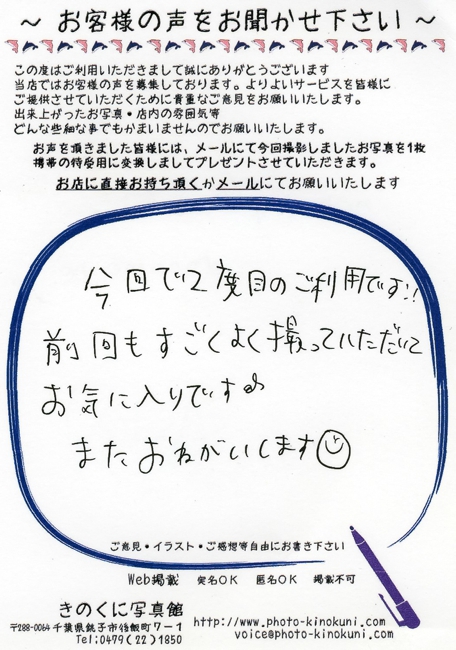 ～ お客様の声をお聞かせ下さい ～
この度はご利用いただきまして誠にありがとうございます
当店ではお客様の声を募集しております。よりよいサービスを皆様に
ご提供させていただくために貴重なご意見をお願いいたします。
出来上がったお写真・店内の雰囲気等
どんな些細な事でもかまいませんのでお願いいたします。
お声を頂きました皆様には、メールにて今回撮影しましたお写真を1枚
携帯の待受用に変換しましてプレゼントさせていただきます。
お店に直接お持ち頂くかメールにてお願いいたします
今回で2度目のご利用です!!
前回もすごくよく撮っていただいて
お気に入りです♪
またおねがいします☺
ご意見・イラスト・ご感想等自由にお書き下さい
Web掲載 実名OK 匿名OK 掲載不可
きのくに写真館
〒288-0064 千葉県銚子市後飯町7－1
Tel:0479(22)1850
http://www.photo-kinokuni.com/
voice@photo-kinokuni.com